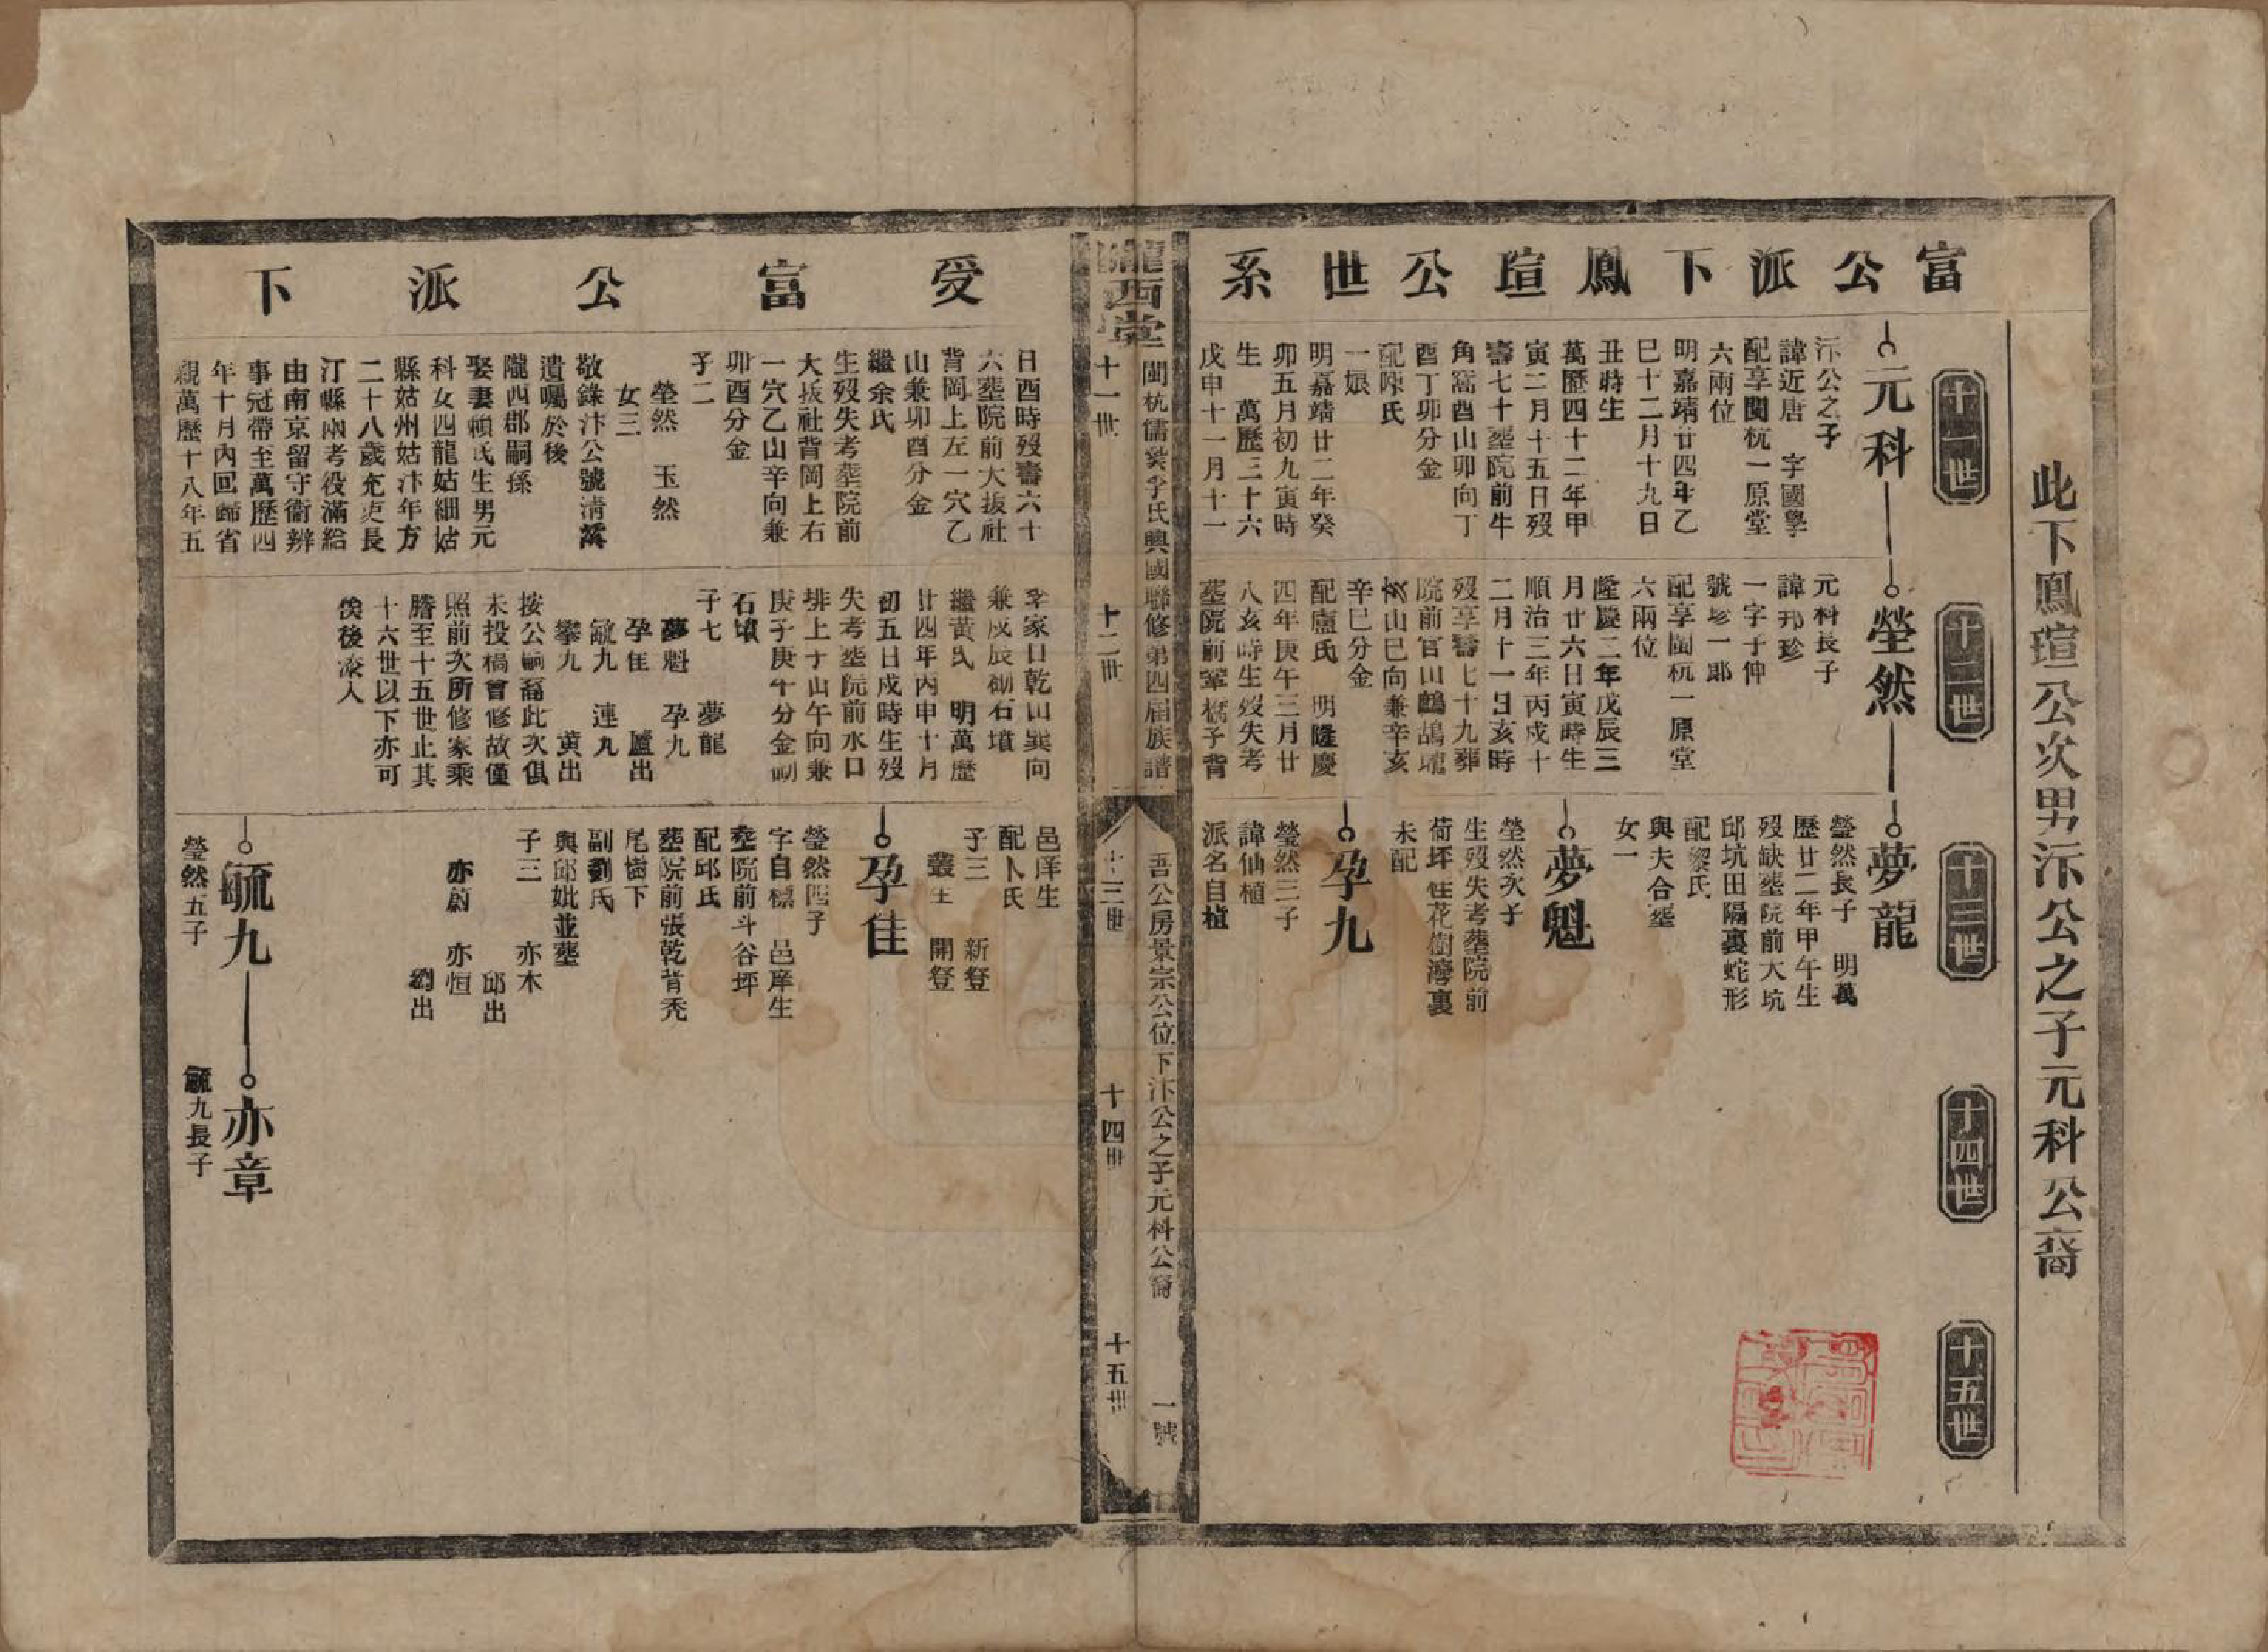 此下鳳瑄公次男汴公之子元科公裔
富公派下鳳瑄公世系
十一世
十二世
十三世
十四世
十五世
元科
汴公之子
諱近唐　字國學
配享閩杭一原堂
六兩位
明嘉靖廿四年乙
巳十二月十九日
丑時生
萬歷四十二年甲
寅二月十五日歿
壽七十塟院前牛
角窩酉山卯向丁
酉丁卯分金
配陳氏
一娘
明嘉靖廿二年癸
卯五月初九寅時
生　萬歷三十六
戊申十一月十一
塋然
元科長子
諱邦珍
一字子仲
號珍一郎
配享閩杭一原堂
六兩位
隆慶二年戊辰三
月廿六日寅時生
順治三年丙戌十
二月十一日亥時
歿享壽七十九葬
院前官山鷓鴣壠
亥山巳向兼辛亥
辛巳分金
配廬氏　明隆慶
四年庚午三月廿
八亥時生歿失考
塟院前
夢龍
瑩然長子　明萬
歷廿二年甲午生
歿缺塟院前大坑
邱坑田隔裏蛇形
配黎氏
與夫合塟
女一
夢魁
塋然次子
生歿失考塟院前
荷坪性花樹灣裏
未配
孕九
瑩然三子
諱仙植
派名自植
隴西堂
閩杭儒紫李氏興國聯修第四届族譜
吾公房景宗公位下汴公之子元科公裔
一號
十一世
十二世
十三世
十四世
十五世
受富公派下
日酉時歿壽六十
六塟院前大拔社
背岡上左一穴乙
山兼卯酉分金
繼余氏
生歿失考塟院前
大拔社背岡上右
一穴乙山辛向兼
卯酉分金
子二
塋然　玉然
女三
敬錄汴公號清溪
遺囑於後
隴西郡嗣係
娶妻賴氏生男元
科女四龍姑細姑
縣姑州姑汴年方
二十八歲充吏長
汀縣兩考役滿給
由南京留守衞辨
事冠帶至萬歷四
年十月內回歸省
親萬歷十八年五
家日乾山巽向
兼戌辰砌石墳
繼黃氏　明萬歷
廿四年丙申十月
初五日戌時生歿
失考塟院前水口
排上子山午向兼
庚子庚午分金砌
石墳
子七　夢龍
夢魁　孕九
孕佳　廬出
毓九　連九
攀九　黃出
按公嗣裔此次俱
未投稿會修故僅
照前次所修家乘
謄至十五世止其
十六世以下亦可
俟後添入
邑庠生
配卜氏
子三　新登
叢生　開登
孕佳
瑩然四子
字自標　邑庠生
塟院前斗谷坪
配邱氏
塟院前張乾背禿
尾樹下
副劉氏
與邱妣並塟
子三　亦木
邱出
亦蔚　亦恒
劉出
毓九
瑩然五子
亦章
毓九長子